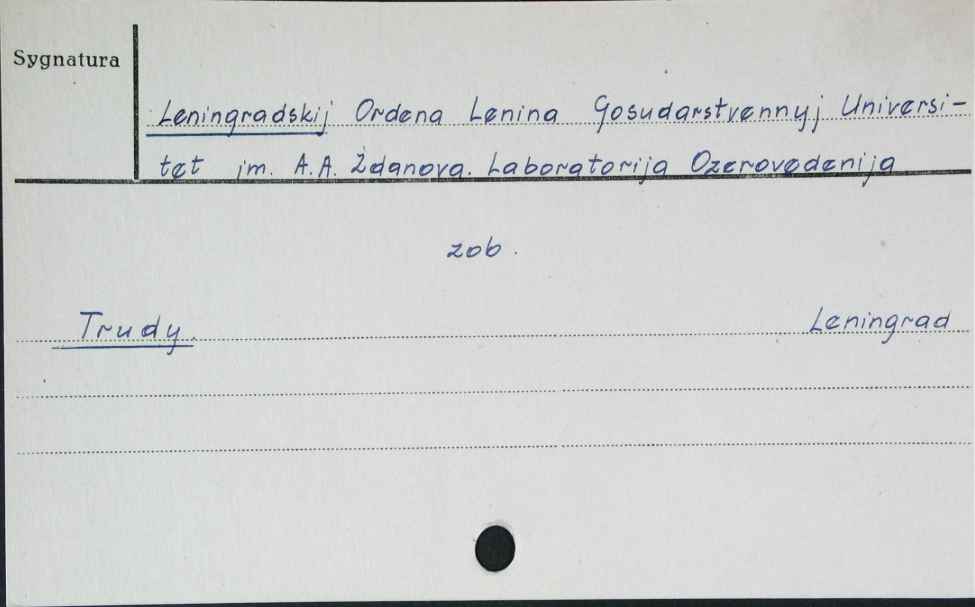 Sygnatura
Leningradskij Ordena Lenina Gosudarstvennyj Universi-
tet im. A.A. Ždanova. Laboratorija Ozerovedenija
zob.
Trudy.
Leningrad